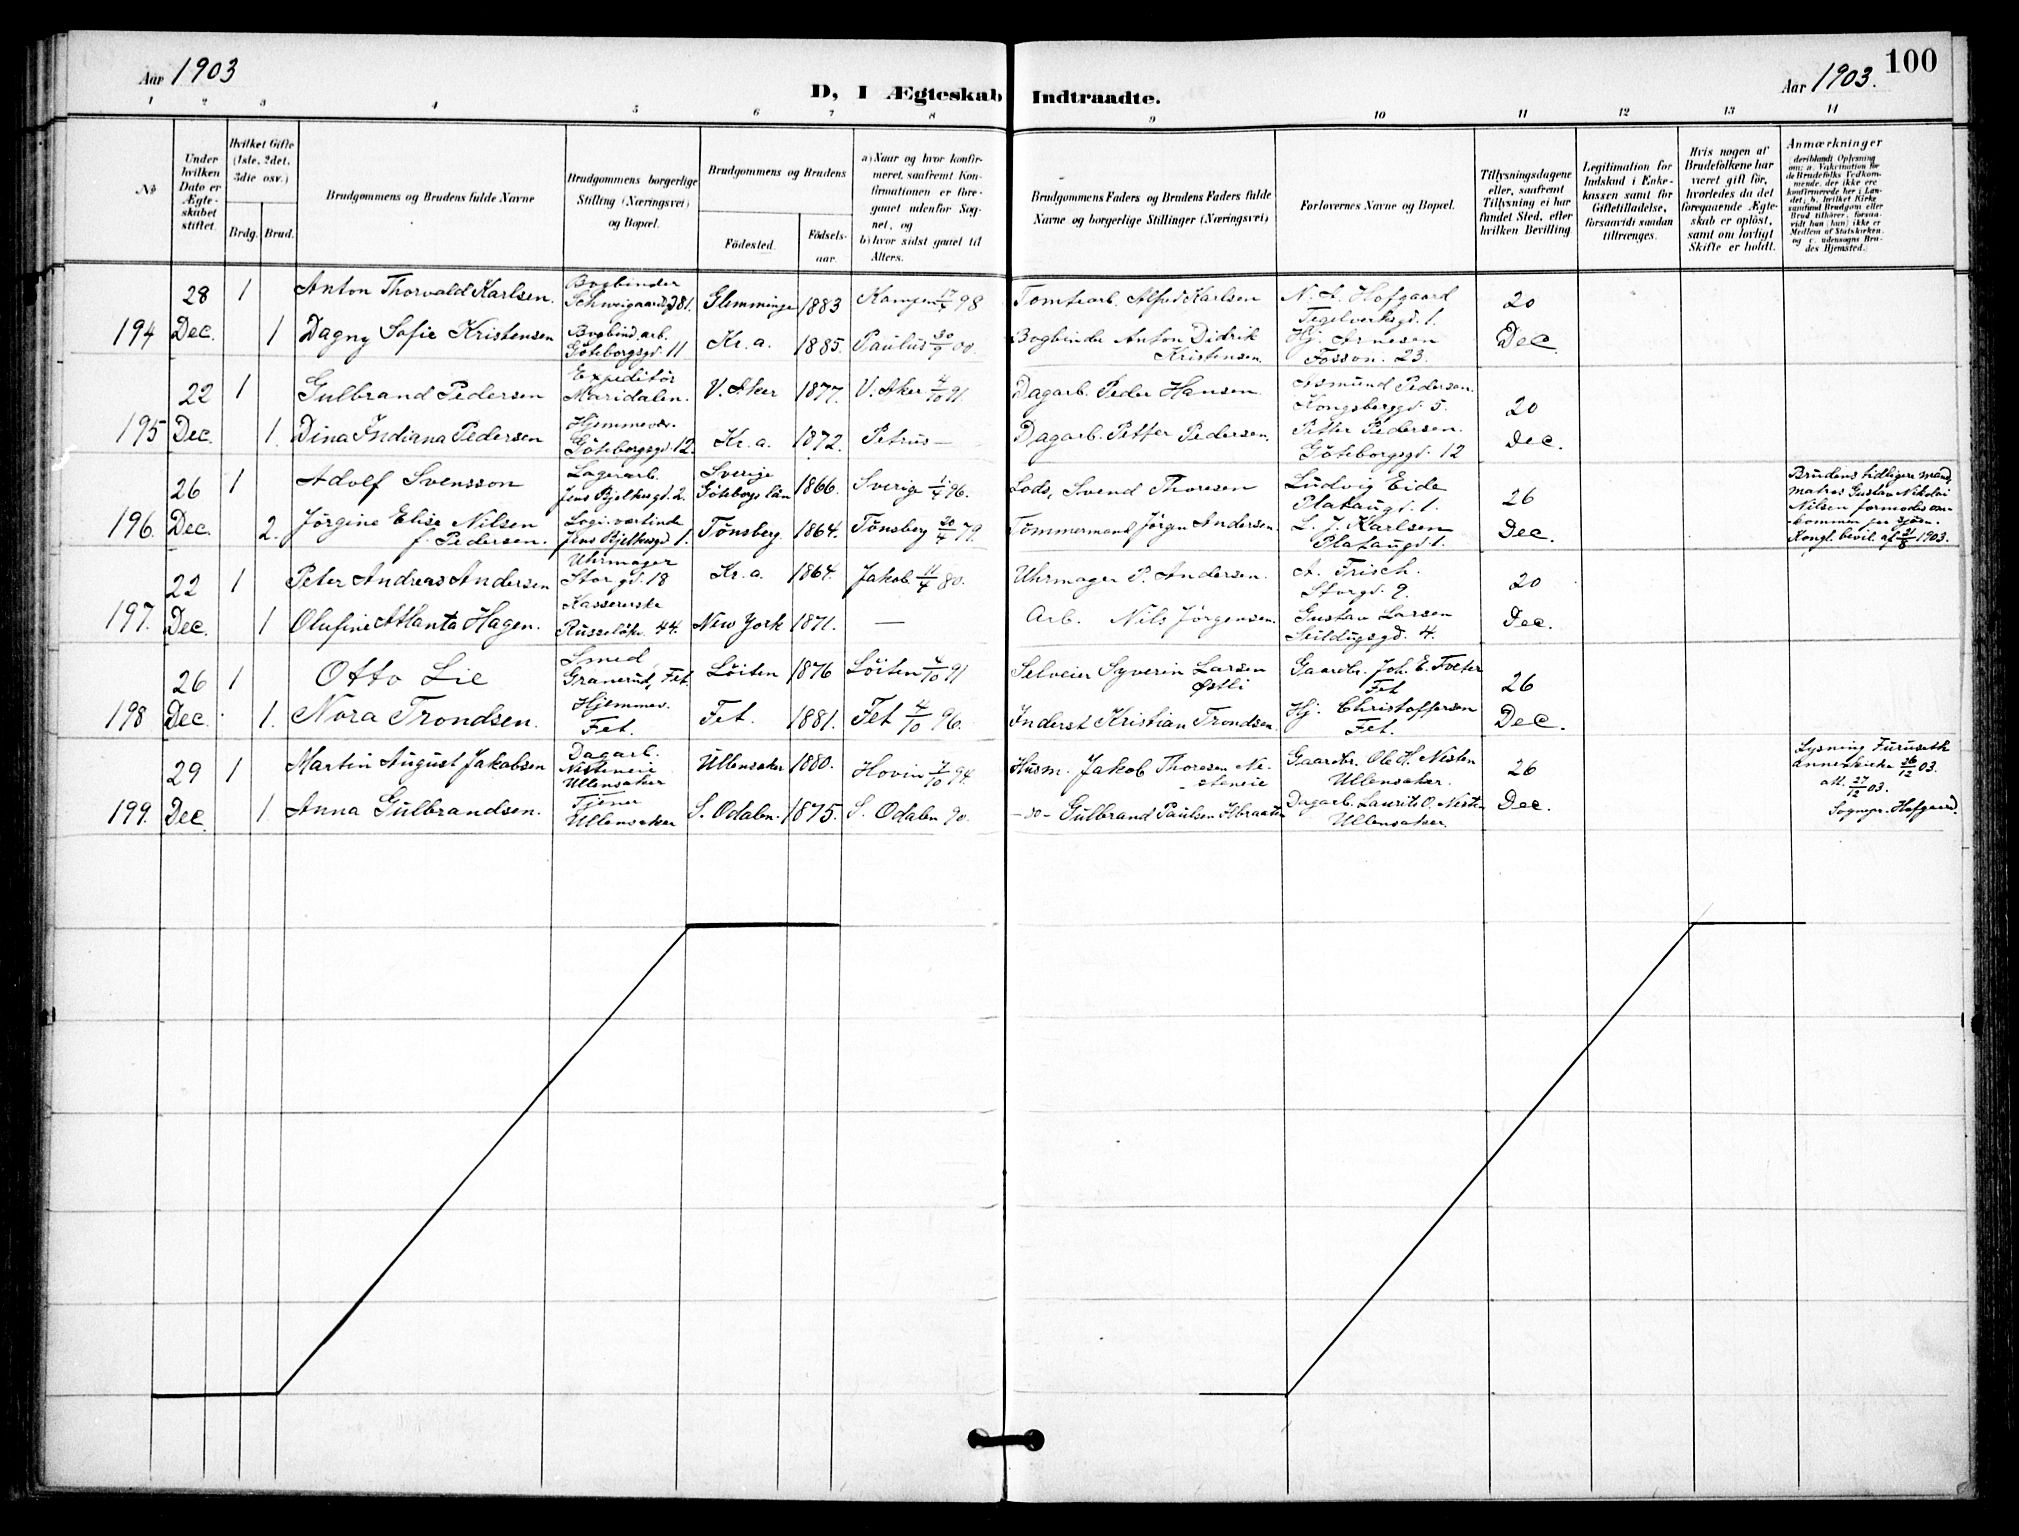 Aar 1903
D, I Ægteskab Indtraadte.
Aar 1903.
100
1 2 3 4 5 6 7 8 9 10 11 12 13 14
No
Under hvilken Dato er Ægteskabet stiftet.
Hvilket Gifte (1ste, 2det, 3die osv.)
Brdg. Brud.
Brudgommens og Brudens fulde Navne
Brudgommens borgerlige Stilling (Næringsvei) og Bopæl.
Brudgommens og Brudens
Fødested.
Fødselsaar.
a) Naar og hvor konfirmeret, saafremt Konfirmationen er foregaaet udenfor Sognet, og
b) hvor sidst gaaet til Alters.
Brudgommens Faders og Brudens Faders fulde Navne og borgerlige Stillinger (Næringsvei)
Forlovernes Navne og Bopæl.
Tillysningsdagene eller, saafremt Tillysning ei har fundet Sted, efter hvilken Bevilling
Legitimation for Indskud i Enkekassen samt for Giftetilladelse, forsaavidt saadan tiltrænges.
Hvis nogen af Brudefolkene har været gift før, hvorledes da det foregaaende Ægteskab er opløst, samt om lovligt Skifte er holdt.
Anmærkninger
(deriblandt Oplysning om: a. Vakcination for de Brudefolks Vedkommende, der ikke ere konfirmerede her i Landet; b. hvilket Kirkesamfund Brudgom eller Brud tilhører, forsaavidt han (hun) ikke er Medlem af Statskirken, og c. udensogns Brudes Hjemsted.
28 1 Anton Thorvald Karlsen. Bogbinder Schweigaardsgd 81. Glemminge 1883 Kampen 17/4 98 Tomtearb. Alfred Karlsen N. L. Hofgaard Tegelverksgd. 1. 20
194 Dec. 1 Dagny Sofie Kristensen Bogbind.arb. Göteborgsgd. 11 Kr.a. 1885. Paulus 30/9 00. Bogbinder Anton Didrik Kristensen. Hj. Arnesen Fosson. 23. Dec.
22 1 Gulbrand Pedersen Expeditör Maridalen. V. Aker 1877. V. Aker 4/10 91. Dagarb. Peder Hansen. Asmund Pedersen. Kongsberggd. 5. 20
195 Dec. 1. Dina Indiana Pedersen Hjemmevær. Göteborgsgd. 12. Kr.a. 1872. Petrus — Dagarb. Petter Pedersen. Petter Pedersen. Göteborgsgd. 12 Dec.
26 1 Adolf Svensson Lagerarb. Jens Bjelkesgd. 2. Sverige Göteborgs län 1866. Sverige 1/4 96. Lods, Svend Thoresen Ludvig Eide Plataugd. 1. 26
196. Dec. 2. Jörgine Elise Nilsen f. Pedersen. Logi.værtinde Jens Bjelkesgd. 1. Tønsberg 1864. Tønsberg 20/4 79. Tømmermand Jørgen Andersen. L. J. Karlsen Plataugd. 1. Dec.
Brudens tidligere mand,
matros Gustav Nikolai
Nilsen formodes omkommen
paa sjøen.
Kongl. bevil. af 21/8 1903.
22 1 Peter Andreas Andersen Uhrmager Storgd. 18 Kr.a. 1864. Jakob 11/4 80. Uhrmager P. Andersen. A. Frisch. Storgd. 9. 20
197. Dec. 1 Olufine Atlanta Hagen. Kassererske Russeløkv. 44. New York 1871. — Arb. Nils Jørgensen. Gustav Larsen Seildugsgd. 4. Dec.
26 1 Otto Lie Smed, Granerud, Fet. Løiten 1876 Løiten 4/10 91 Selveier Syverin Larsen Østli Gaardbr. Joh. E. Tveter Fet 26
198 Dec. 1. Nora Trondsen. Hjemmev. Fet. Fet. 1881. Fet 4/10 96. Inderst Kristian Trondsen. Hj. Christoffersen Fet. Dec.
29 1 Martin August Jakobsen Dagarb. Nesteneie Ullensaker Ullensaker 1880. Hovin 7/10 94. Husm. Jakob Thoresen Nesteneie Gaardbr. Ole H. Nesten Ullensaker. 26
199. Dec. 1 Anna Gulbrandsen. Tjener Ullensaker S. Odalen. 1875. S. Odalen 90. -so- Gulbrand Paulsen Dagarb. Laurits O. Nesten Ullensaker. Dec.
Lysning Furuseth
Anneskirke 26/12 03.
att. 27/12 03.
Sognepr. Hofgaard.